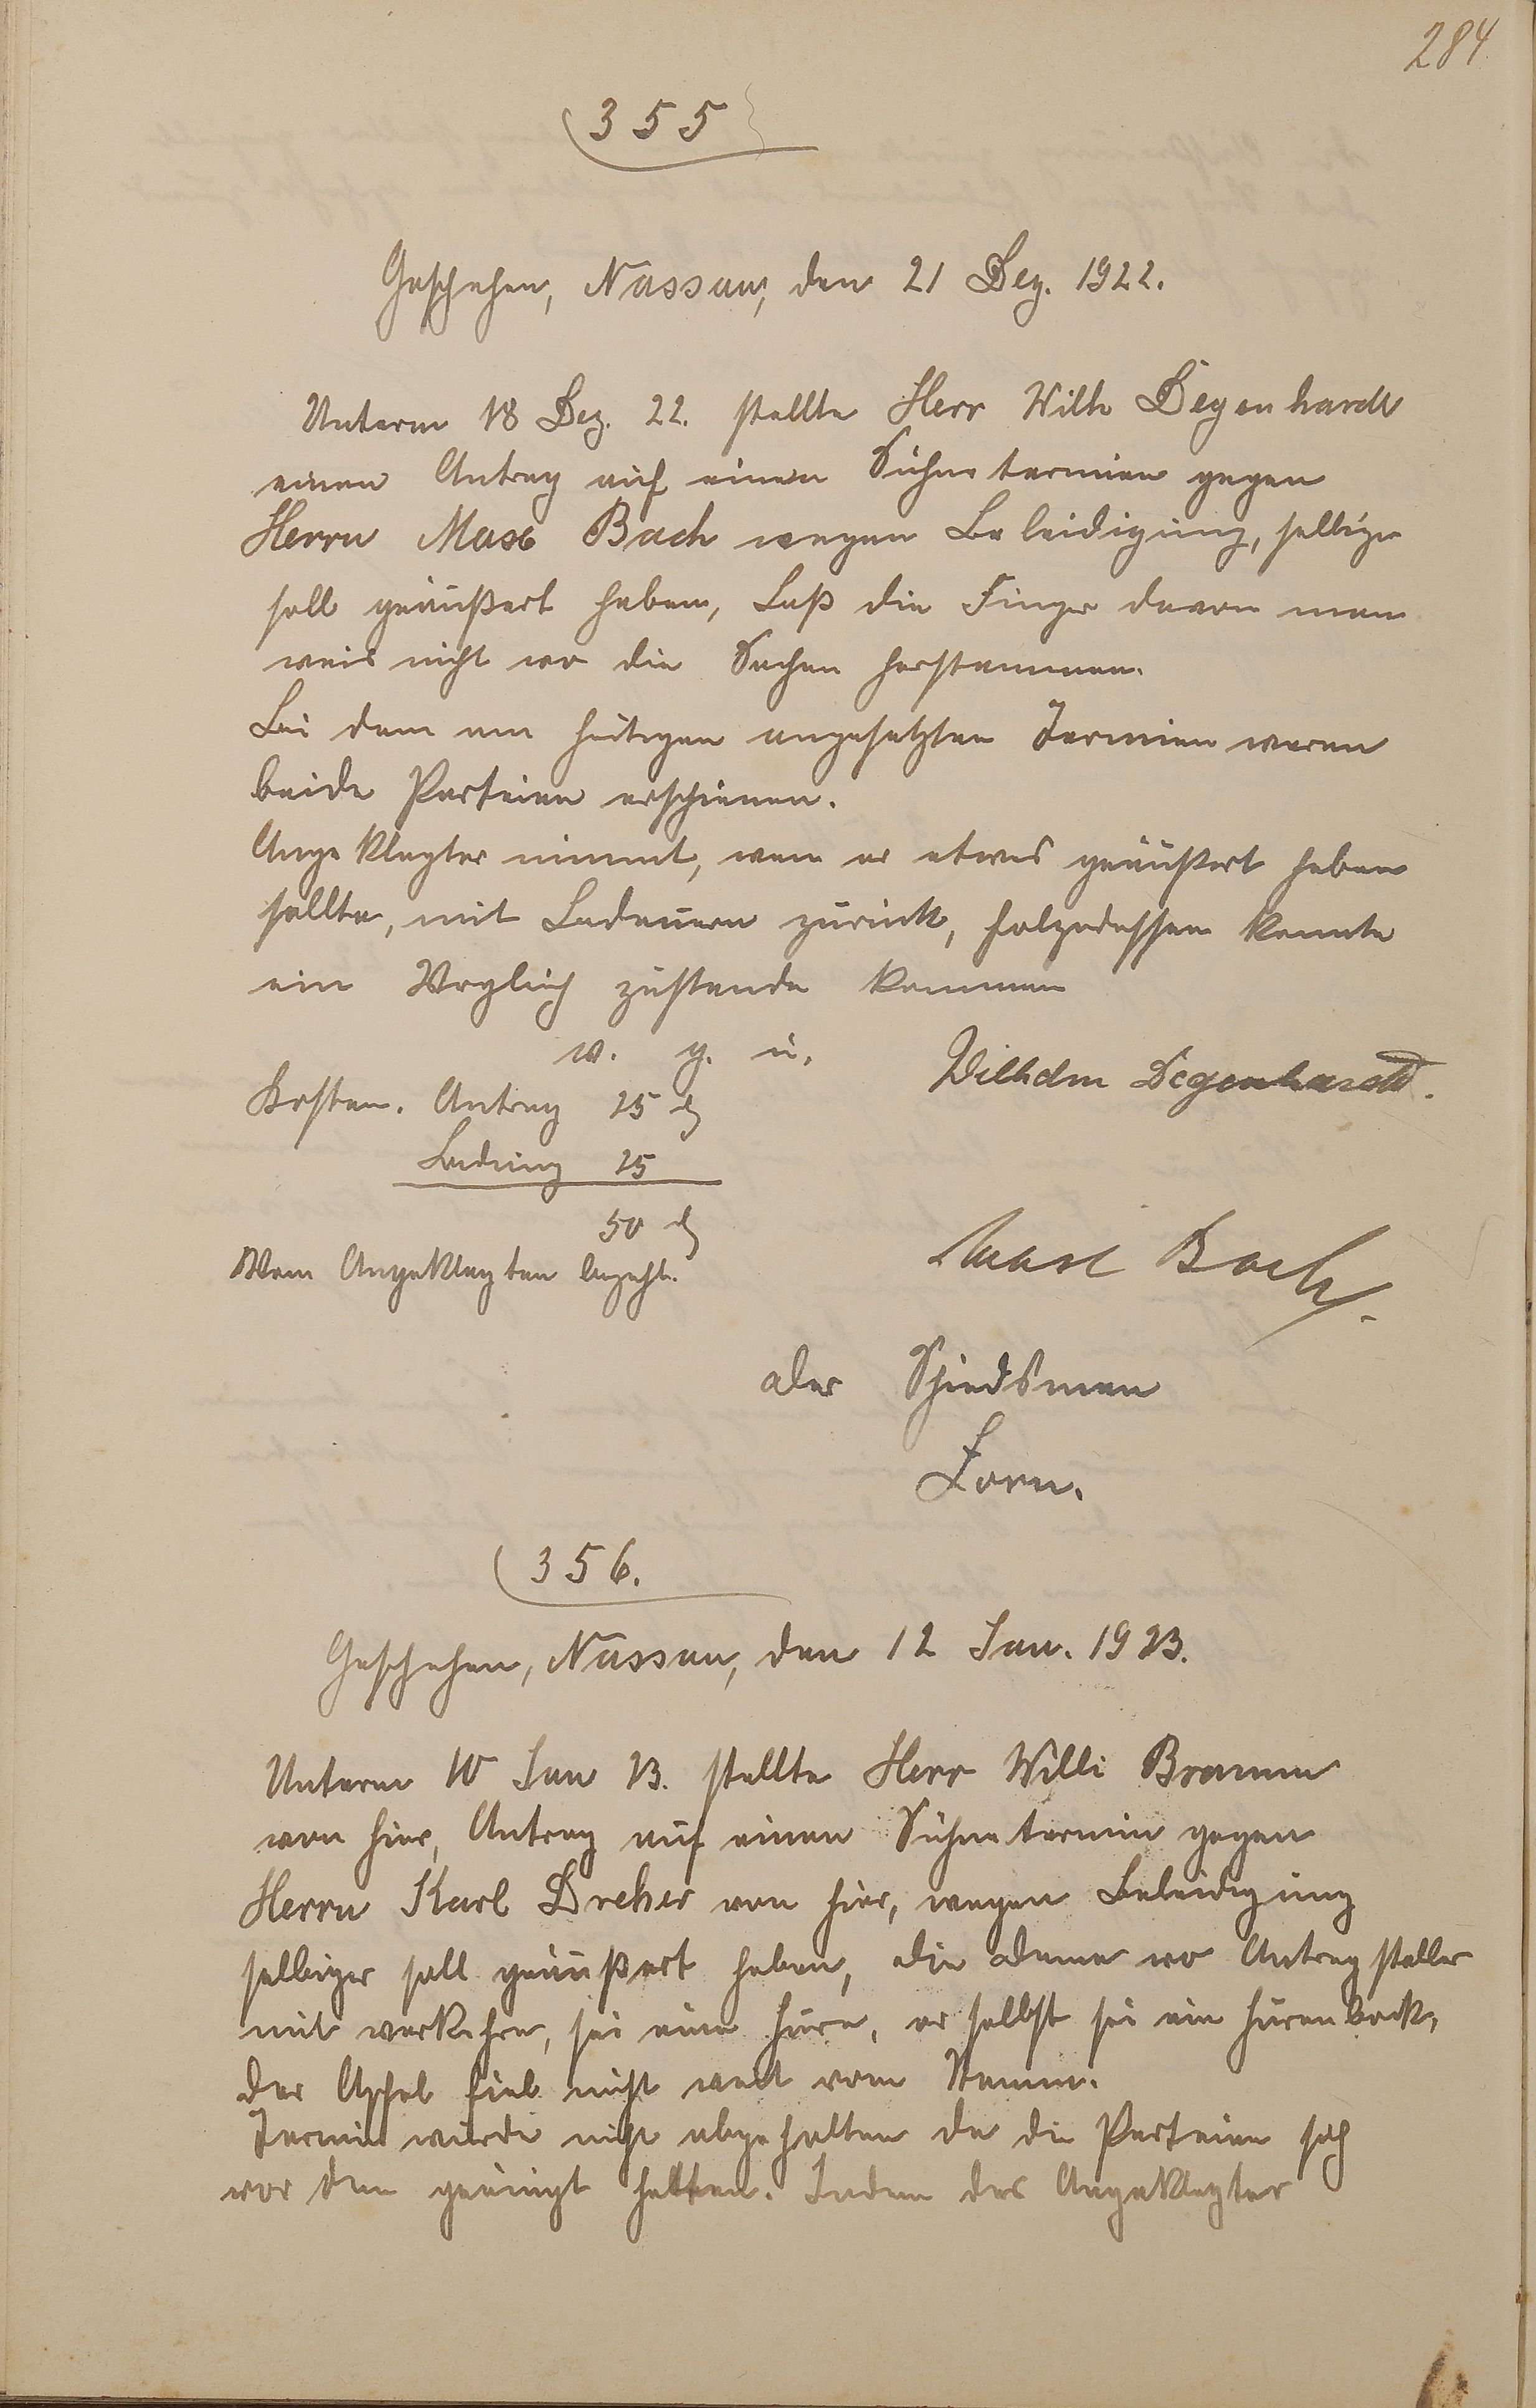 284
355
Geschehen, Nassau, den 21 Dez. 1922.
Unterm 18 Dez. 22. stellte Herr Wilh Degenhardt
einen Antrag auf einen Sühnetermien gegen
Herrn Max Bach wegen Beleidigung, selbiger
soll geäußert haben, Laß die Finger davon man
weis nicht wo die Sachen herstammen.
Bei dem am heutigen angesetzten Termien waren
beide Parteien erschienen.
Angeklagter nimmt, wen er etwas geäußert haben
sollte, mit Bedauern zurück, folgedessen konnte
ein Verglich zustande kommen
v. g. u.
Wilhelm Degenhardt.
Kosten. Antrag 25 M
Ladung 25
50 M
Vom Angeklagten bezahlt.
Max Bach.
der Schiedsman
Zorn.
356.
Geschehen, Nassau, den 12 Jan. 1923.
Unterm 10 Jan 23. stellte Herr Willi Bramm
von hier, Antrag auf einen Sühnetermin gegen
Herrn Karl Dreher von hier, wegen Beleidigung
selbiger soll geäußert haben, die Dame wo Antragsteller
mit verkehre, sei eine Hure, er selbst sei ein Hurenbock,
der Apfel fiel nicht weit vom Stamm.
Termin wurde nicht abgehalten da die Parteien sich
vor dem geeinigt hatten. Indem der Angeklagter